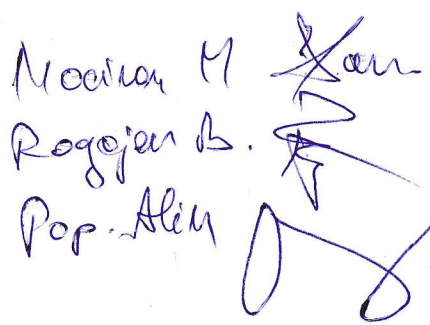 Mociran M
Rogojan B.
Pop. Alin